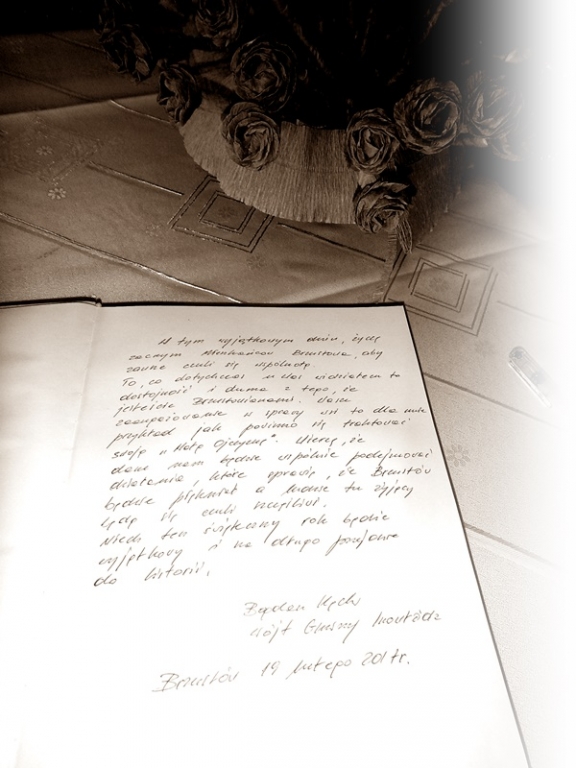 W tym wyjątkowym dniu, życzę
zacnym Mieszkańcom Brzustowa, aby
zawsze czuli się wspólnotą.
To, co dotychczas u Was widziałem to
dostojność i duma z tego, że
jesteście Brzustowianami. Wasze
zaangażowanie w sprawy wsi to dla mnie
przykład jak powinno się traktować
swoją "Małą Ojczyznę". Wierzę, że
dane nam będzie wspólnie podejmować
działania, które sprawią, że Brzustów
będzie piękniał a ludzie tu żyjący
będą się czuli szczęśliwi.
Niech ten świąteczny rok będzie
wyjątkowy i na długo przejdzie
do historii.
Bogdan Kącki
Wójt Gminy Inowłódz
Brzustów 19 lutego 2011r.